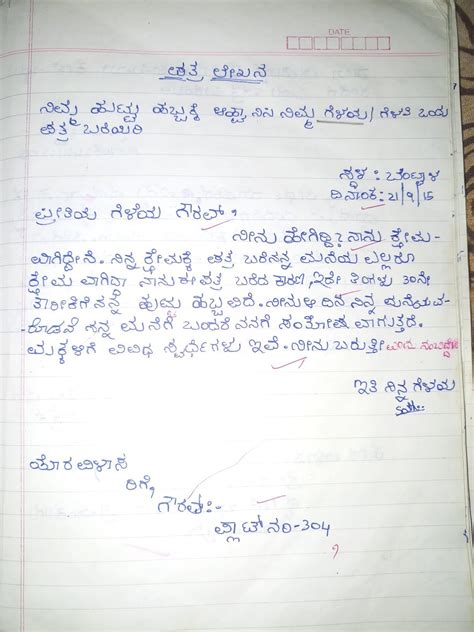 DATE
ಪತ್ರ ಲೇಖನ
ನಿಮ್ಮ ಹುಟ್ಟು ಹಬ್ಬಕ್ಕೆ ಆಹ್ವಾನಿಸಿ ನಿಮ್ಮ ಗೆಳೆಯ/ ಗೆಳತಿ ಒಯ
ಪತ್ರ ಬರೆಯಿರಿ
ಸ್ಥಳ : ಬೆಂಟ್ವಳ
ದಿನಾಂಕ: 21/9/15
ಪ್ರೀತಿಯ ಗೆಳೆಯ ಗೌರವ್,
ನೀನು ಹೇಗಿದ್ದಿ? ನಾನು ಕ್ಷೇಮ-
ವಾಗಿದ್ದೇನೆ. ನಿನ್ನ ಕ್ಷೇಮಕ್ಕೆ ಪತ್ರ ಬರೆ ನನ್ನ ಮನೆಯ ಎಲ್ಲರೂ
ಕ್ಷೇಮ ವಾಗಿದ್ದಾ ನಾನು ಈ ಪತ್ರ ಬರೆದ ಕಾರಣ, ಇದೇ ತಿಂಗಳು 30ನೇ
ತಾರೀಕಿಗೆ ನನ್ನೆ ಹುಟ್ಟು ಹಬ್ಬವಿದೆ. ನೀನು ಆ ದಿನ ನಿನ್ನ ಮನೆಯವ-
ರೊಡನೆ ನನ್ನ ಮನೆಗೆ ಬಂದರೆ ನನಗೆ ಸಂತೋಷ ವಾಗುತ್ತದೆ.
ಮಕ್ಕಳಿಗೆ ವಿವಿಧ ಸ್ಪರ್ಧೆಗಳು ಇವೆ. ನೀನು ಬರುತ್ತೀ
ಇತಿ ನಿನ್ನ ಗೆಳೆಯ
ಹೊರ ವಿಳಾಸ
ರಿಗೆ,
ಗೌರವ್:-
ಪ್ಲಾಟ್ ನಂ-304